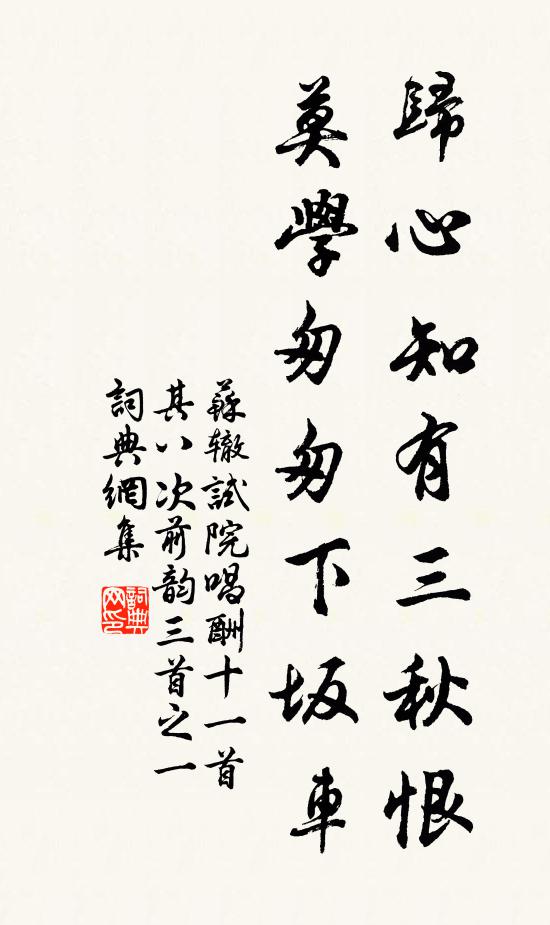 歸心知有三秋恨
莫學匆匆下坂車
蘇辙試院唱酬十一首
其八次前韵三首之一
詞典網集
詞典
网印